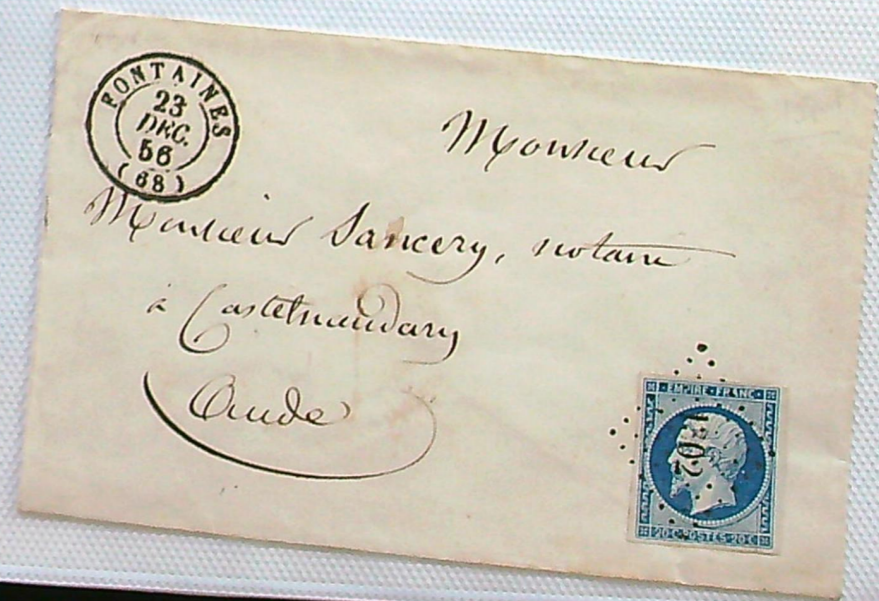 FONTAINES
23
DEC.
56
(68)
Monsieur
Monsieur Sancery, notaire
à Castelnaudary
Aude
EMPIRE FRANC
20C POSTES 20C